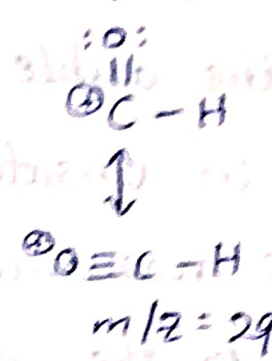 :O:
||
⊕C - H
↕
⊕O ≡ C - H
m/z = 29